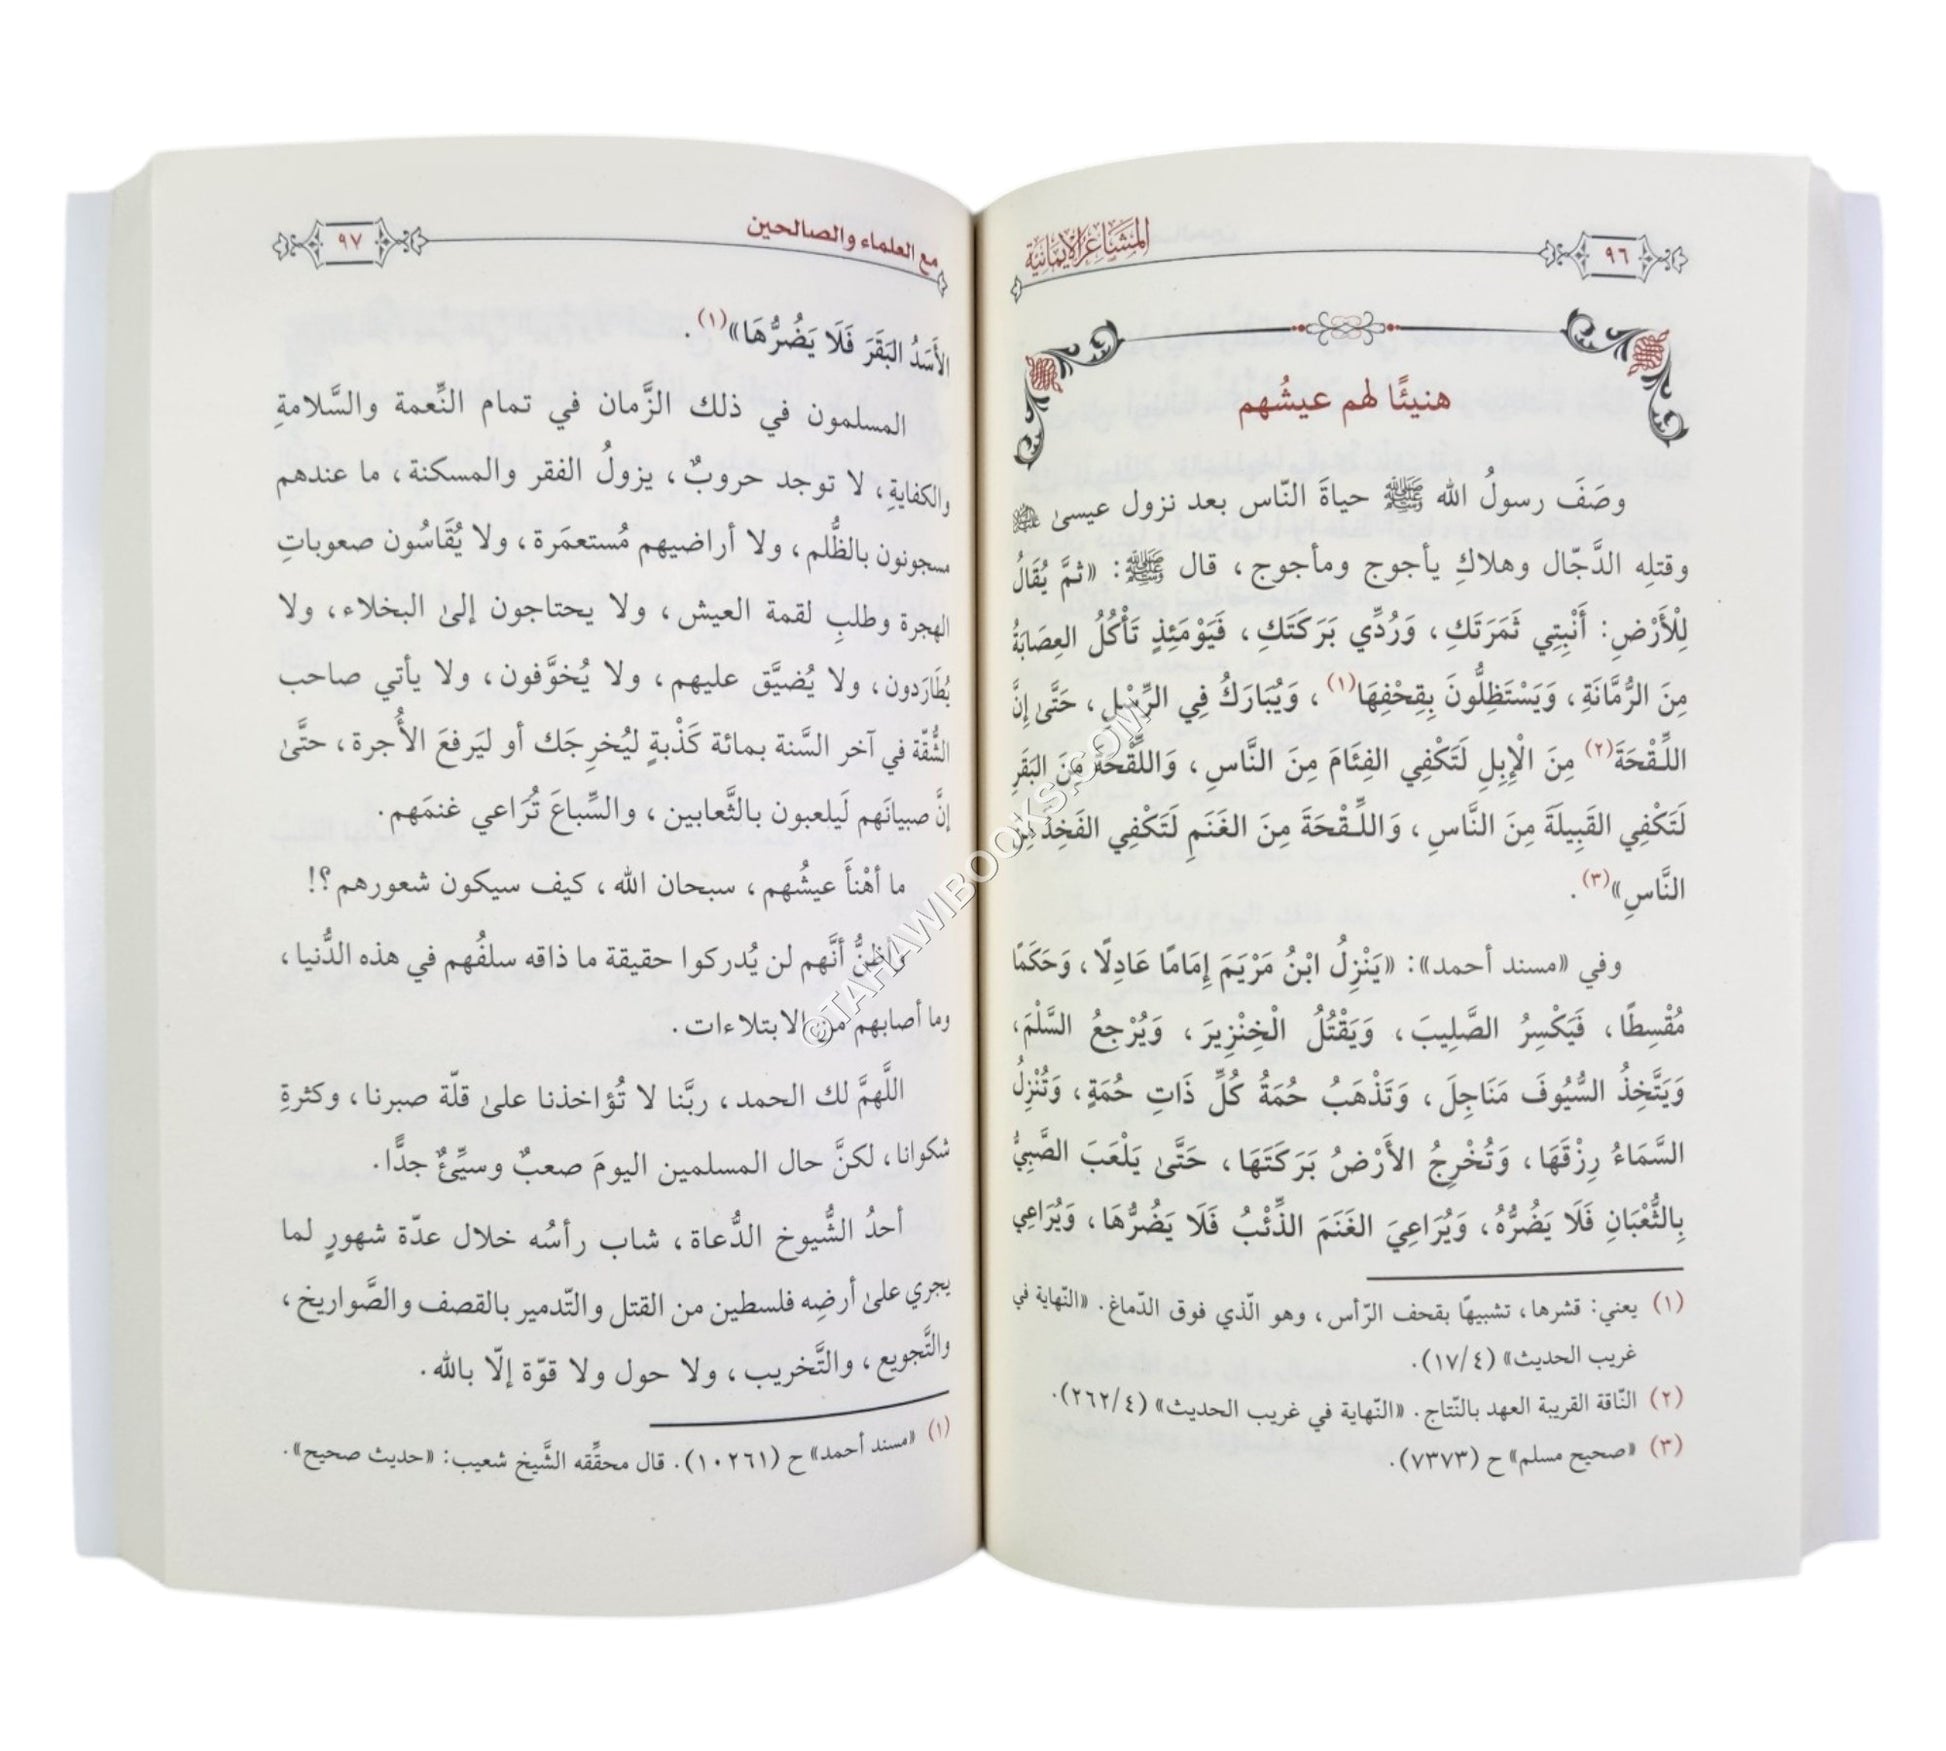 ٩٦
المشاعر الإيمانية
هنيئًا لهم عيشُهم
وصَفَ رسولُ الله ﷺ حياةَ النّاس بعد نزول عيسىٰ
وقتلِه الدَّجّال وهلاكِ يأجوج ومأجوج، قال ﷺ: «ثمَّ يُقَالُ
لِلْأَرْضِ: أَنْبِتِي ثَمَرَتَكِ، وَرُدِّي بَرَكَتَكِ، فَيَوْمَئِذٍ تَأْكُلُ العِصَابَةُ
مِنَ الرُّمَّانَةِ، وَيَسْتَظِلُّونَ بِقِحْفِهَا(١)، وَيُبَارَكُ فِي الرِّسْلِ، حَتَّىٰ إِنَّ
اللِّقْحَةَ(٢) مِنَ الْإِبِلِ لَتَكْفِي الفِئَامَ مِنَ النَّاسِ، وَاللِّقْحَةَ مِنَ البَقَرِ
لَتَكْفِي القَبِيلَةَ مِنَ النَّاسِ، وَاللِّقْحَةَ مِنَ الغَنَمِ لَتَكْفِي الفَخِذَ مِنَ
النَّاسِ»(٣).
وفي «مسند أحمد»: «يَنْزِلُ ابْنُ مَرْيَمَ إِمَامًا عَادِلًا، وَحَكَمًا
مُقْسِطًا، فَيَكْسِرُ الصَّلِيبَ، وَيَقْتُلُ الْخِنْزِيرَ، وَيُرْجِعُ السَّلْمَ،
وَيَتَّخِذُ السُّيُوفَ مَنَاجِلَ، وَتَذْهَبُ حُمَةُ كُلِّ ذَاتِ حُمَةٍ، وَتُنْزِلُ
السَّمَاءُ رِزْقَهَا، وَتُخْرِجُ الأَرْضُ بَرَكَتَهَا، حَتَّىٰ يَلْعَبَ الصَّبِيُّ
بِالثُّعْبَانِ فَلَا يَضُرُّهُ، وَيُرَاعِيَ الغَنَمَ الذِّئْبُ فَلَا يَضُرُّهَا، وَيُرَاعِي
(١) يعني: قشرها، تشبيهًا بقحف الرّأس، وهو الّذي فوق الدّماغ. «النّهاية في
غريب الحديث» (١٧/٤).
(٢) النّاقة القريبة العهد بالنّتاج. «النّهاية في غريب الحديث» (٢٦٢/٤).
(٣) «صحيح مسلم» ح (٧٣٧٣).
مع العلماء والصالحين
٩٧
الأَسَدُ البَقَرَ فَلَا يَضُرُّهَا»(١).
المسلمون في ذلك الزَّمان في تمام النِّعمة والسَّلامةِ
والكفايةِ، لا توجد حروبٌ، يزولُ الفقر والمسكنة، ما عندهم
مسجونون بالظُّلم، ولا أراضيهم مُستعمَرة، ولا يُقَاسُون صعوباتِ
الهجرة وطلبِ لقمة العيش، ولا يحتاجون إلىٰ البخلاء، ولا
يُطَارَدون، ولا يُضيَّق عليهم، ولا يُخوَّفون، ولا يأتي صاحب
الشُّقّة في آخر السَّنة بمائة كَذْبةٍ ليُخرِجَك أو ليَرفعَ الأُجرة، حتَّىٰ
إنَّ صبيانَهم لَيلعبون بالثَّعابين، والسِّباعَ تُرَاعي غنمَهم.
ما أهْنأَ عيشُهم، سبحان الله، كيف سيكون شعورهم؟!
وأظنُّ أنَّهم لن يُدركوا حقيقة ما ذاقه سلفُهم في هذه الدُّنيا،
وما أصابهم من الابتلاءات.
اللَّهمَّ لك الحمد، ربَّنا لا تُؤاخذنا علىٰ قلّة صبرنا، وكثرةِ
شكوانا، لكنَّ حال المسلمين اليومَ صعبٌ وسيِّئٌ جدًّا.
أحدُ الشُّيوخ الدُّعاة، شاب رأسُه خلال عدّة شهورٍ لما
يجري علىٰ أرضِه فلسطين من القتل والتّدمير بالقصف والصَّواريخ،
والتَّجويع، والتَّخريب، ولا حول ولا قوّة إلّا بالله.
(١) «مسند أحمد» ح (١٠٢٦١). قال محقِّقه الشَّيخ شعيب: «حديث صحيح».
©TAHAWIBOOKS.COM